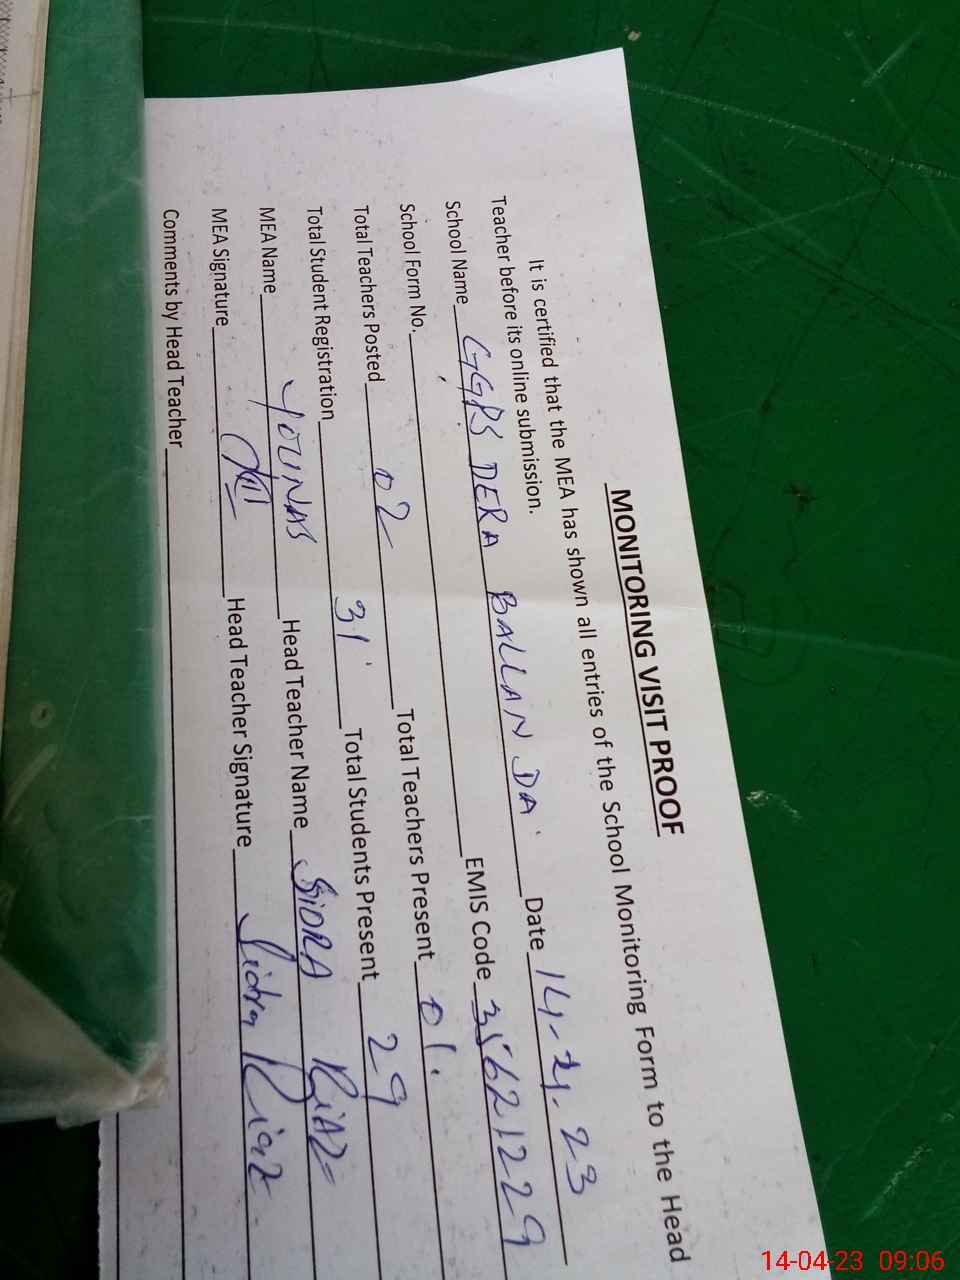 MONITORING VISIT PROOF
It is certified that the MEA has shown all entries of the School Monitoring Form to the Head
Teacher before its online submission.
School Name GGPS DERA BALLAN DA Date 14-4-23
School Form No. EMIS Code 35621229
Total Teachers Posted 02 Total Teachers Present 01.
Total Student Registration 31 Total Students Present 29
MEA Name YOUNAS Head Teacher Name SIDRA RiAZ
MEA Signature Head Teacher Signature Sidra Riaz
Comments by Head Teacher
14-04-23 09:06